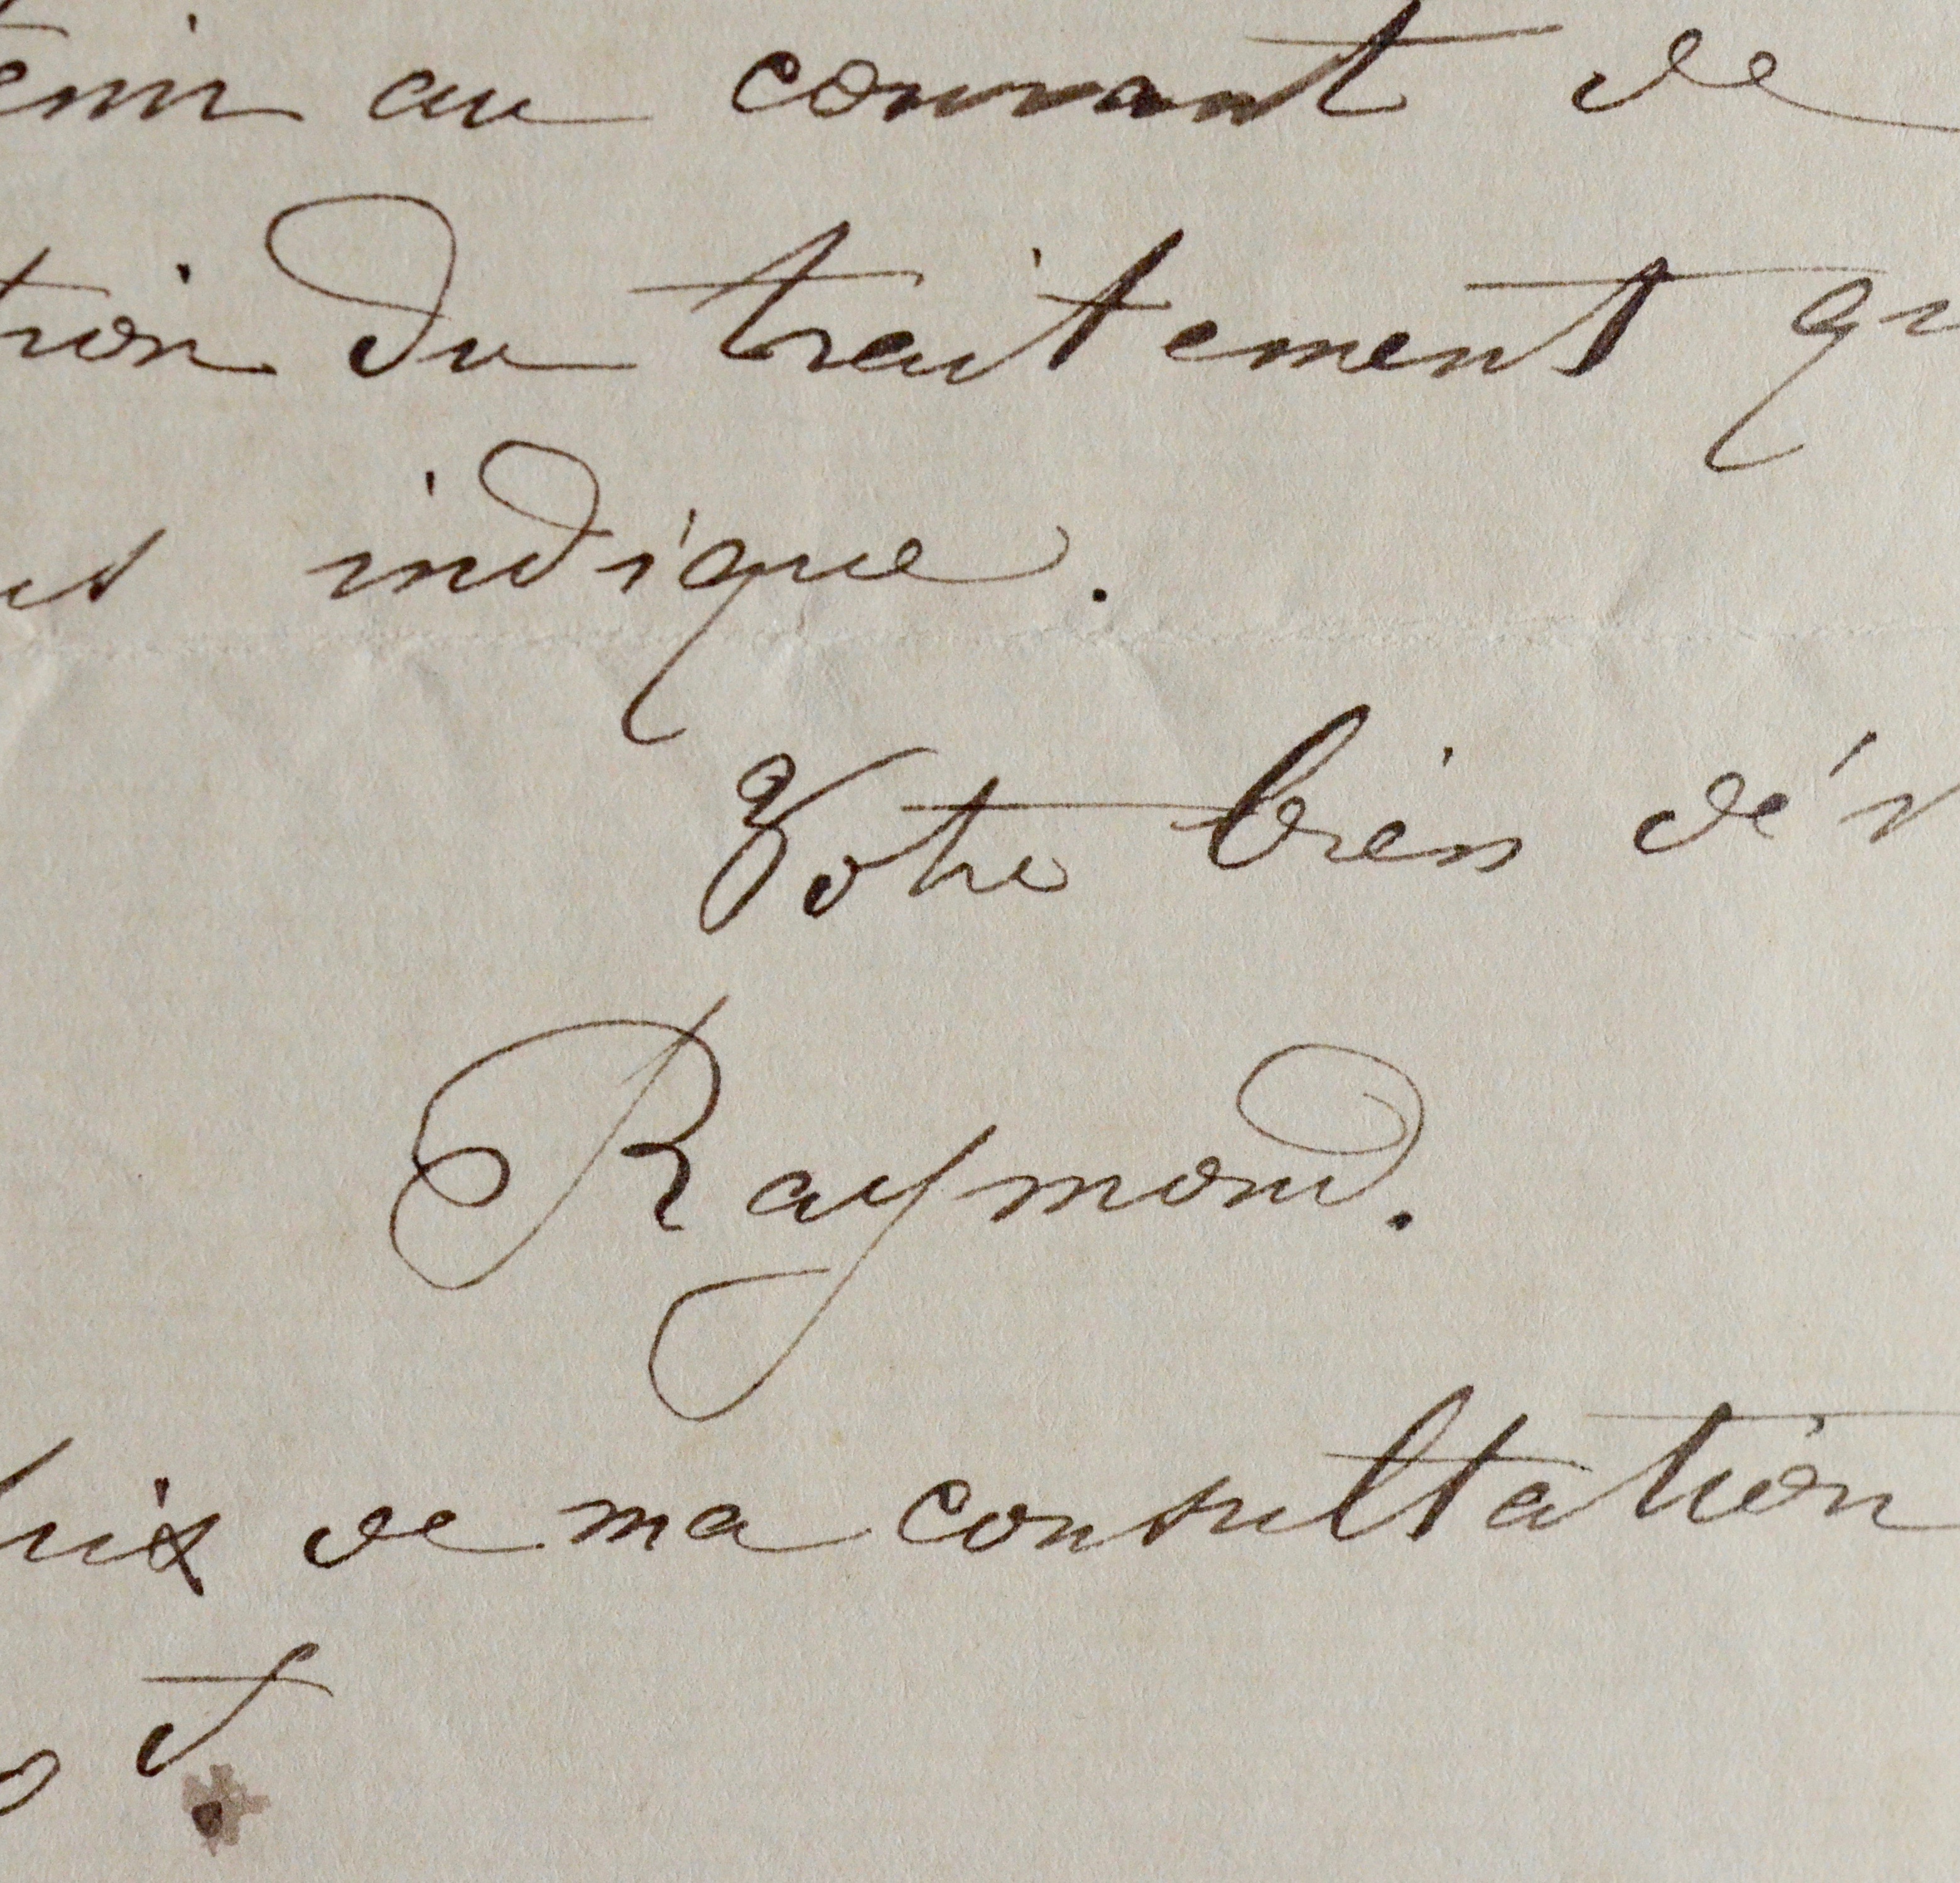 tenir au courant de
tion du traitement qu
indique.
Votre bien dév
Raymond.
prix de ma consultation
f.